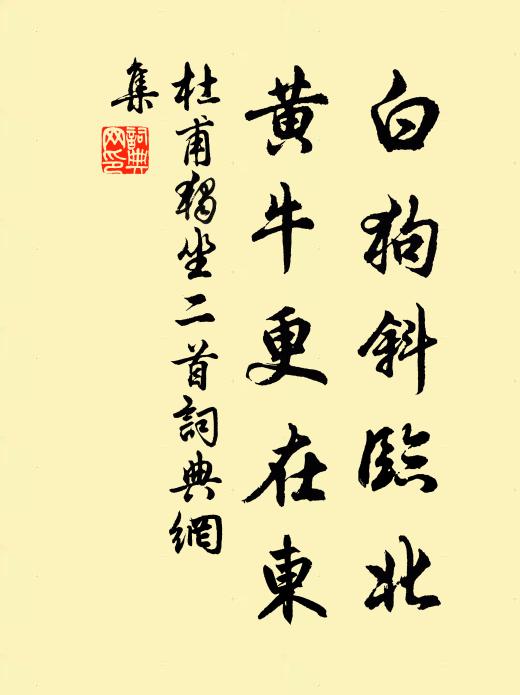 白狗斜臨北
黃牛更在東
杜甫獨坐二首詞典網
集
詞典
网印